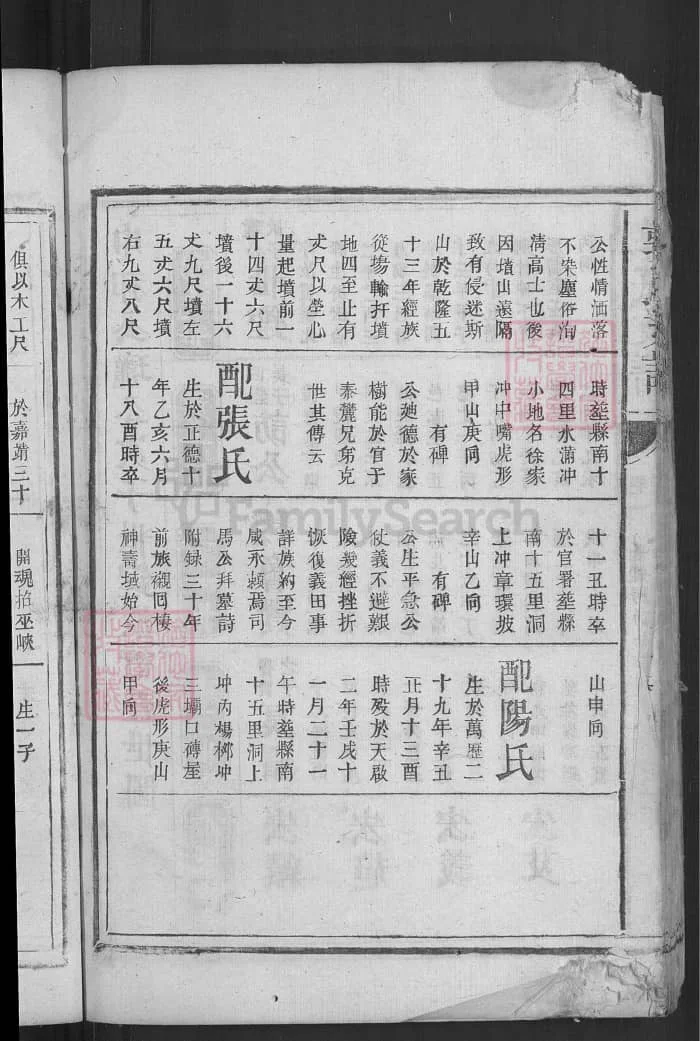 公性情洒落
不染塵俗洵
清高士也後
因墳山遠隔
致有侵迷斯
山於乾隆五
十三年經族
從塲輸扦墳
地四至止有
丈尺以塋心
量起墳前一
十四丈六尺
墳後一十六
丈九尺墳左
五丈六尺墳
右九丈八尺
時塟縣南十
四里水滿冲
小地名徐家
冲中嘴虎形
甲山庚向
有碑
公廸德於家
樹能於官于
泰麓兄弟克
世其傳云
配張氏
生於正德十
年乙亥六月
十八酉時卒
十一丑時卒
於官署塟縣
南十五里洞
上冲章環坡
辛山乙向
有碑
公生平急公
仗義不避艱
險幾經挫折
恢復義田事
詳族約至今
咸永頼焉司
馬公拜墓詩
附録三十年
前族襯同棲
神壽域始今
山申向
配陽氏
生於萬歷二
十九年辛丑
正月十三酉
時殁於天啟
二年壬戌十
一月二十一
午時塟縣南
十五里洞上
坤丙楊梆坤
三壩口磚屋
後虎形庚山
甲向
俱以木工尺
於嘉靖三十
開魂招巫峽
生一子
FamilySearch